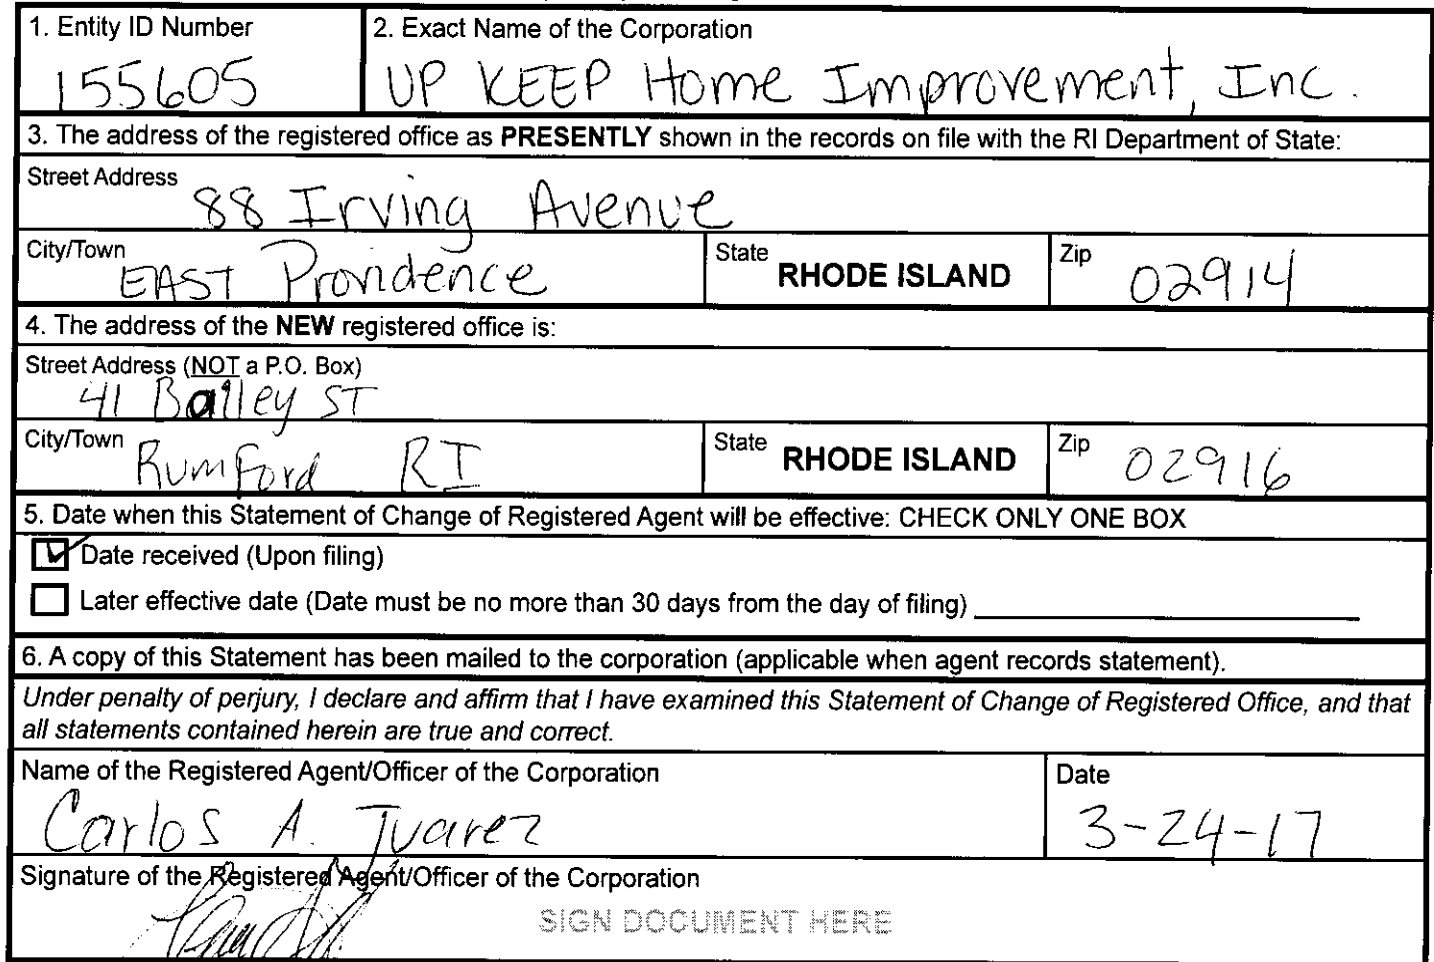 1. Entity ID Number
155605
2. Exact Name of the Corporation
UP KEEP Home Improvement, Inc.
3. The address of the registered office as PRESENTLY shown in the records on file with the RI Department of State:
Street Address
88 Irving Avenue
City/Town
EAST Providence
State RHODE ISLAND
Zip 02914
4. The address of the NEW registered office is:
Street Address (NOT a P.O. Box)
41 Bailey ST
City/Town
Rumford RI
State RHODE ISLAND
Zip 02916
5. Date when this Statement of Change of Registered Agent will be effective: CHECK ONLY ONE BOX
Date received (Upon filing)
Later effective date (Date must be no more than 30 days from the day of filing)
6. A copy of this Statement has been mailed to the corporation (applicable when agent records statement).
Under penalty of perjury, I declare and affirm that I have examined this Statement of Change of Registered Office, and that
all statements contained herein are true and correct.
Name of the Registered Agent/Officer of the Corporation
Carlos A. Juarez
Date
3-24-17
Signature of the Registered Agent/Officer of the Corporation
SIGN DOCUMENT HERE